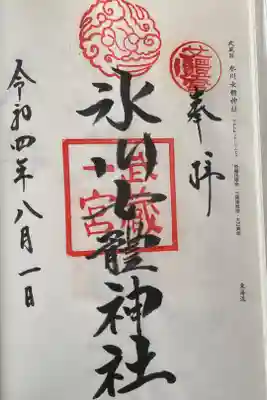 奉拝
武蔵国 氷川女體神社
東海道
氷川女體神社
武蔵
一宮
令和四年八月一日